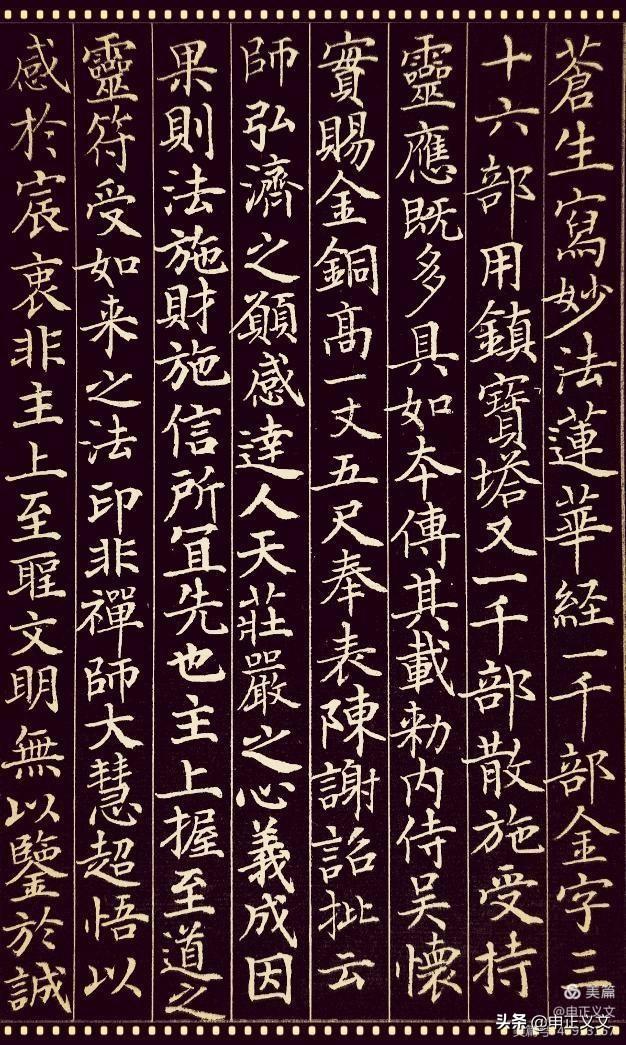 蒼生寫妙法蓮華経一千部金字三
十六部用鎮寶塔又一千部散施受持
靈應既多具如本傳其載勑內侍吴懷
實賜金銅髙一丈五尺奉表陳謝詔批云
師弘濟之願感達人天莊嚴之心義成因
果則法施財施信所冝先也主上握至道之
靈符受如来之法印非禪師大慧超悟以
感於宸衷非主上至聖文明無以鑒於誠
美篇
@申正义文
头条 @申正义文